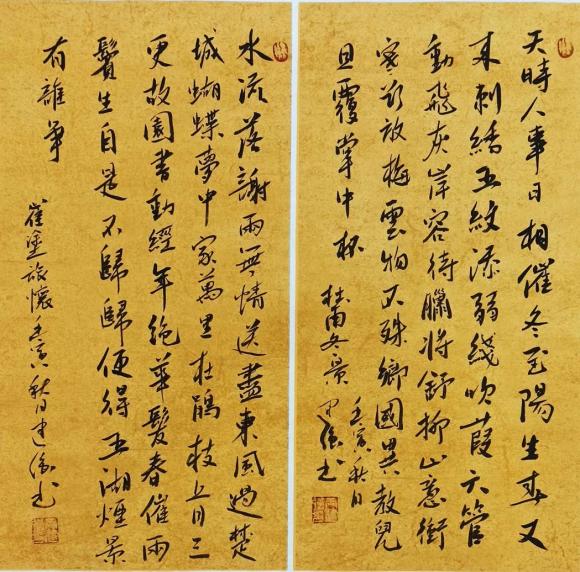 天時人事日相催冬至陽生春又
来刺繡五紋添弱綫吹葭六管
動飛灰岸容待臘將舒柳山意衝
寒欲放梅雲物不殊鄉國異教兒
且覆掌中杯
杜甫冬景
壬寅秋日
书
水流落謝兩無情送盡東風過楚
城蝴蝶夢中家萬里杜鵑枝上月三
更故園書動經年絕華髮春催兩
鬢生自是不歸歸便得五湖煙景
有誰争
崔塗旅懷壬寅秋日书